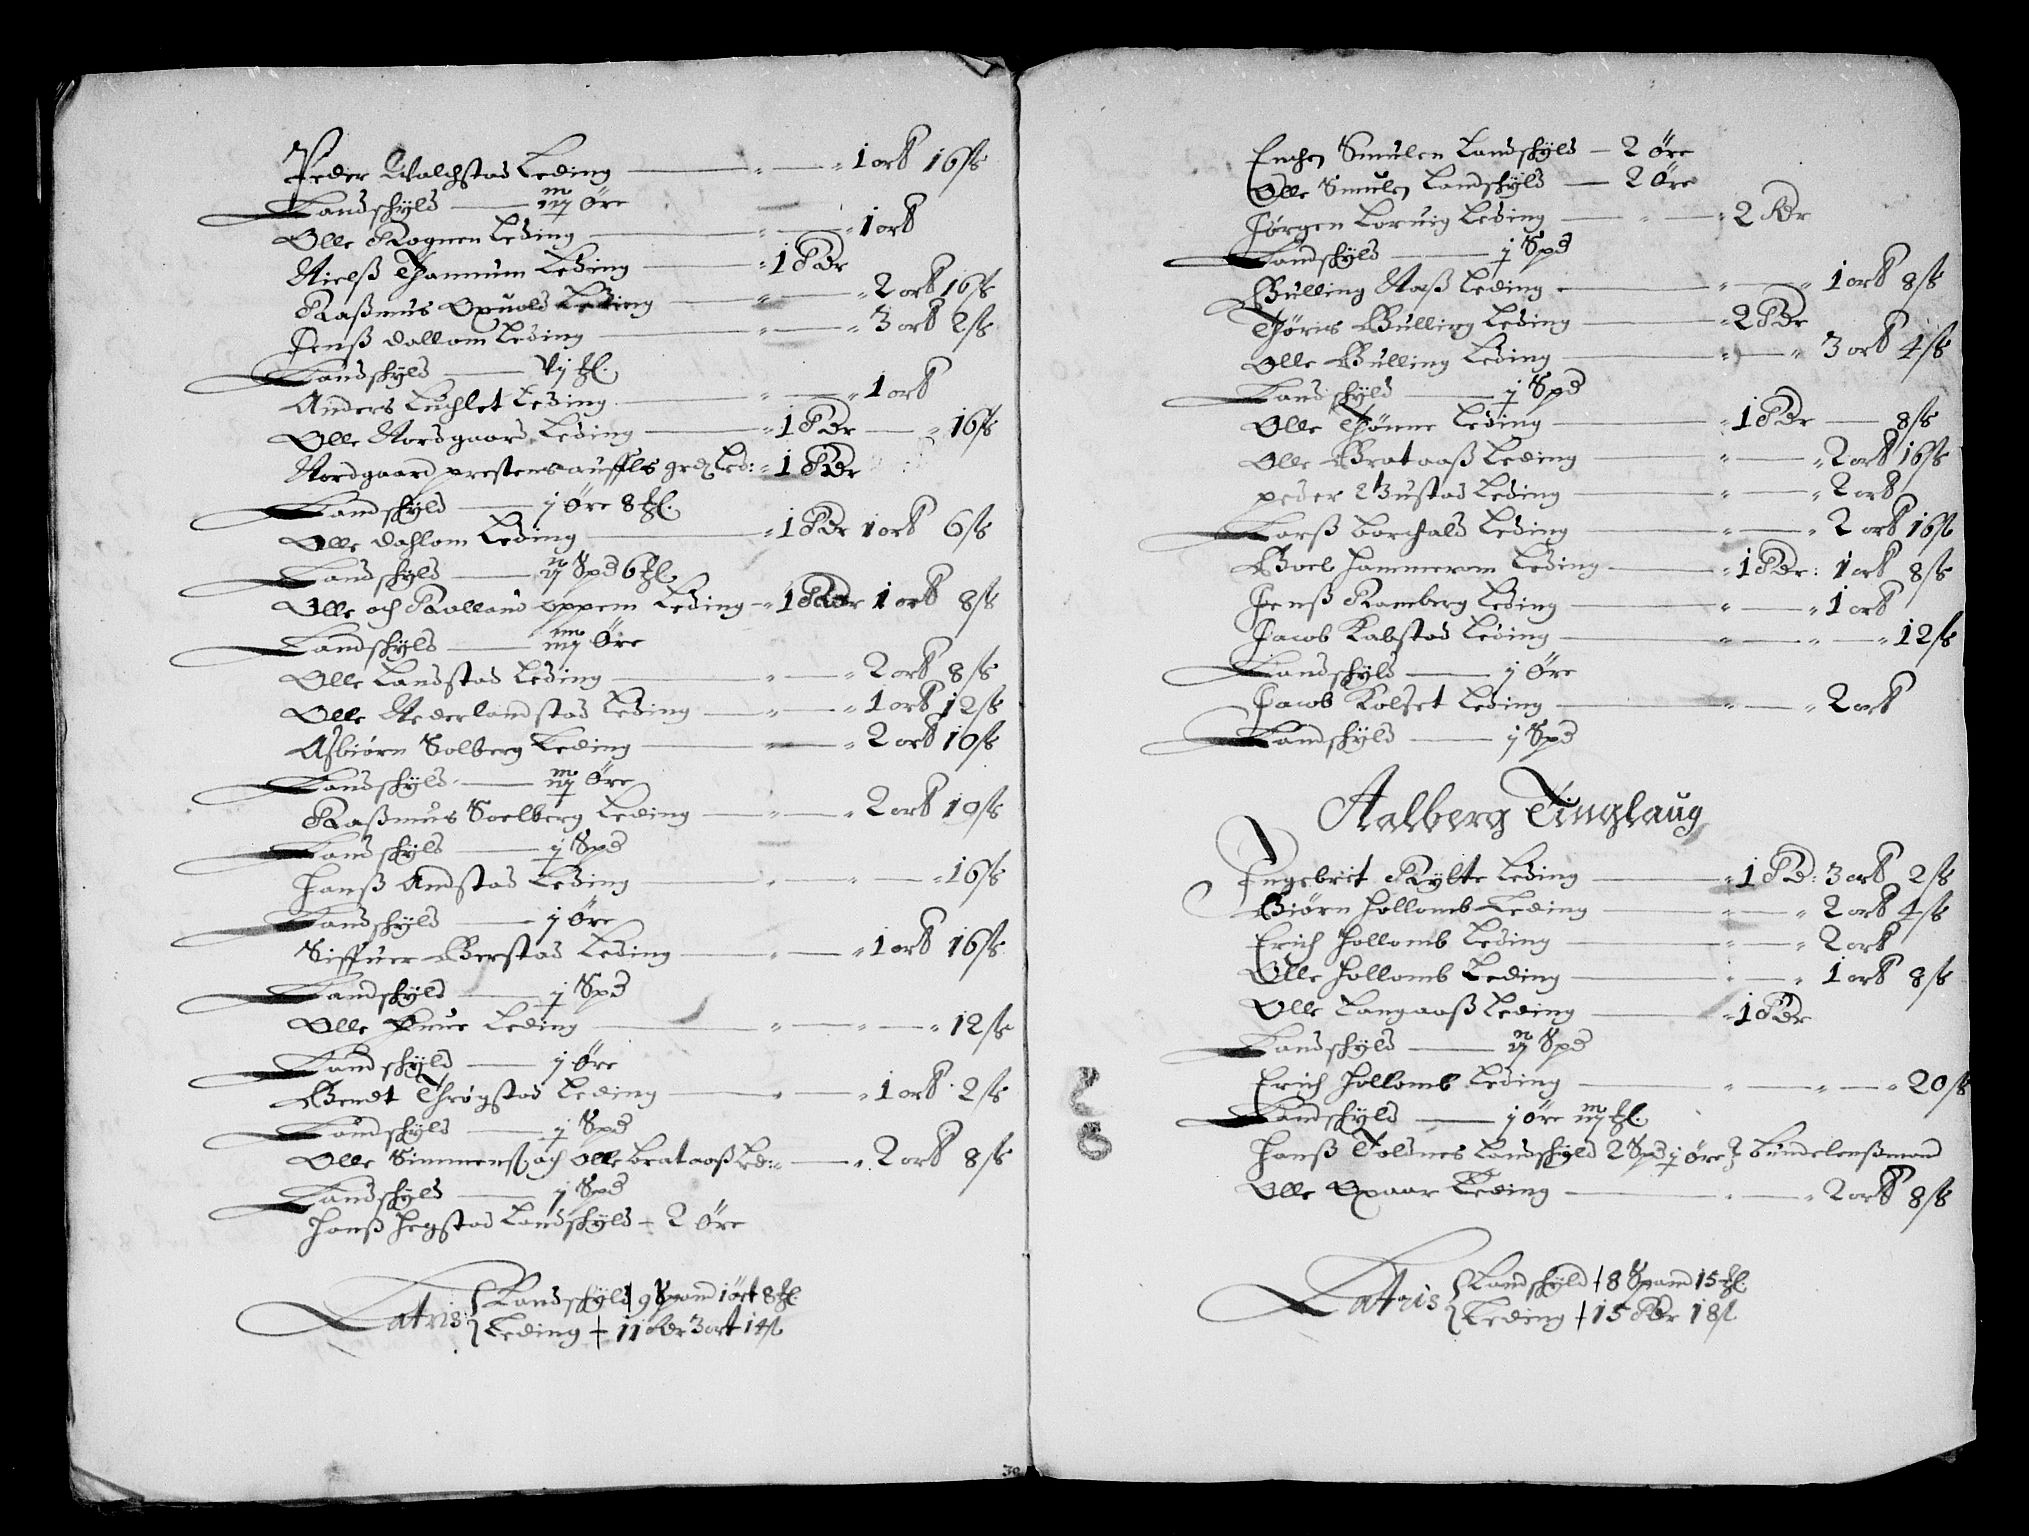 Peder Walchstad Leding — 1 ort 16 ß
Landschyld — iij Öre
Olle Rognen Leding — 1 ort
Nielß Hammum Leding — 1 Rdr
Raßmus Opuold Leding — 2 ort 16 ß
Jenß dallom Leding — 3 ort 2 ß
Landschyld — vj ßl.
Anders Luchlet Leding — 1 ort
Olle Nordgaard Leding — 1 Rdr — 16 ß
Nordgaard prestens Led: 1 Rdr
Landschyld — j Öre 8 ßl.
Olle dahlom Leding — 1 Rdr 1 ort 6 ß
Landschyld — ij Spd 6 ßl.
Olle och Rolland oppem Leding — 1 Rdr 1 ort 8 ß
Landschyld — iiij Öre
Olle Landstad Leding — 2 ort 8 ß
Olle Nederlandstad Leding — 1 ort 12 ß
Asbiörn Solberg Leding — 2 ort 10 ß
Landschyld — iij Öre
Raßmus Soelberg Leding — 2 ort 10 ß
Landschyld — j Spd
Hanß Andstad Leding — 16 ß
Landschyld — j Öre
Siffuer Berstad Leding — 1 ort 16 ß
Landschyld — j Spd
Olle Leding — 12 ß
Landschyld — j Öre
Bendt Thrøgstad Leding — 1 ort 2 ß
Landschyld — j Spd
Olle Simmenß och Olle brataaß Led: — 2 ort 8 ß
Landschyld — j Spd
Hanß Hegstad Landschyld — 2 Öre
Latris Landschyld 9 Spand 1 ört 8 ßl.
Leding 11 Rdr 3 ort 14 ß
Smulen Landschyld — 2 Öre
Olle Smulen Landschyld — 2 Öre
Jørgen Loruig Leding — 2 Rdr
Landschyld — j Spd
Bulling Næß Leding — 1 ort 8 ß
Thöris Bulling Leding — 2 Rdr
Olle Bulling Leding — 3 ort 4 ß
Landschyld — j Spd
Olle Thönne Leding — 1 Rdr — 8 ß
Olle Brataaß Leding — 2 ort 16 ß
peder Bustad Leding — 2 ort
Larß borchald Leding — 2 ort 16 ß
Boel Hammerom Leding — 1 Rdr: 1 ort 8 ß
Jenß Ramberg Leding — 1 ort
Jacob Kabstad Leding — 12 ß
Landschyld — j Öre
Jacob Kolset Leding — 2 ort
Landschyld — j Spd
Aalberg Tinglaug
Ingebrit Rylte Leding — 1 Rd: 3 ort 2 ß
Biörn Hollomb Leding — 2 ort 4 ß
Erich Hollomb Leding — 2 ort
Olle Hollomb Leding — 1 ort 8 ß
Olle Langaaß Leding — 1 Rdr
Landschyld — ij Spd
Erich Hollomb Leding — 20 ß
Landschyld — j Öre iij ßl.
Hanß Toldnes Landschyld 2 Spd j Öre bundelenßmand
Olle Opaar Leding — 2 ort 8 ß
Latris Landschyld 8 Spand 15 ßl.
Leding 15 Rdr 18 ß